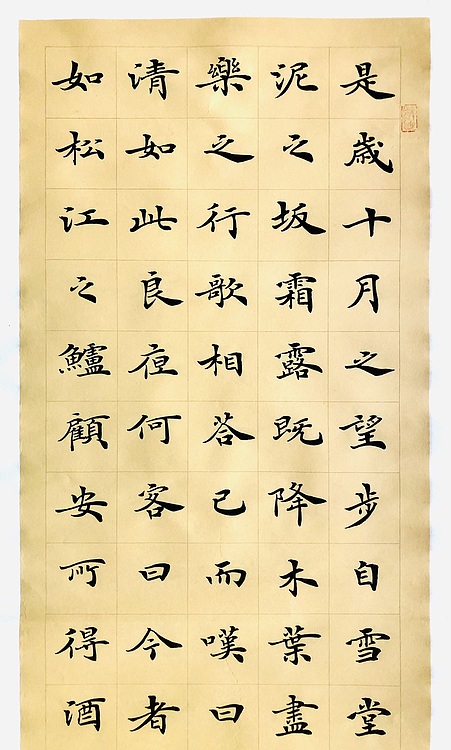 是歲十月之望步自雪堂
泥之坂霜露既降木葉盡
樂之行歌相荅已而嘆曰
清如此良夜何客曰今者
如松江之鱸顧安所得酒